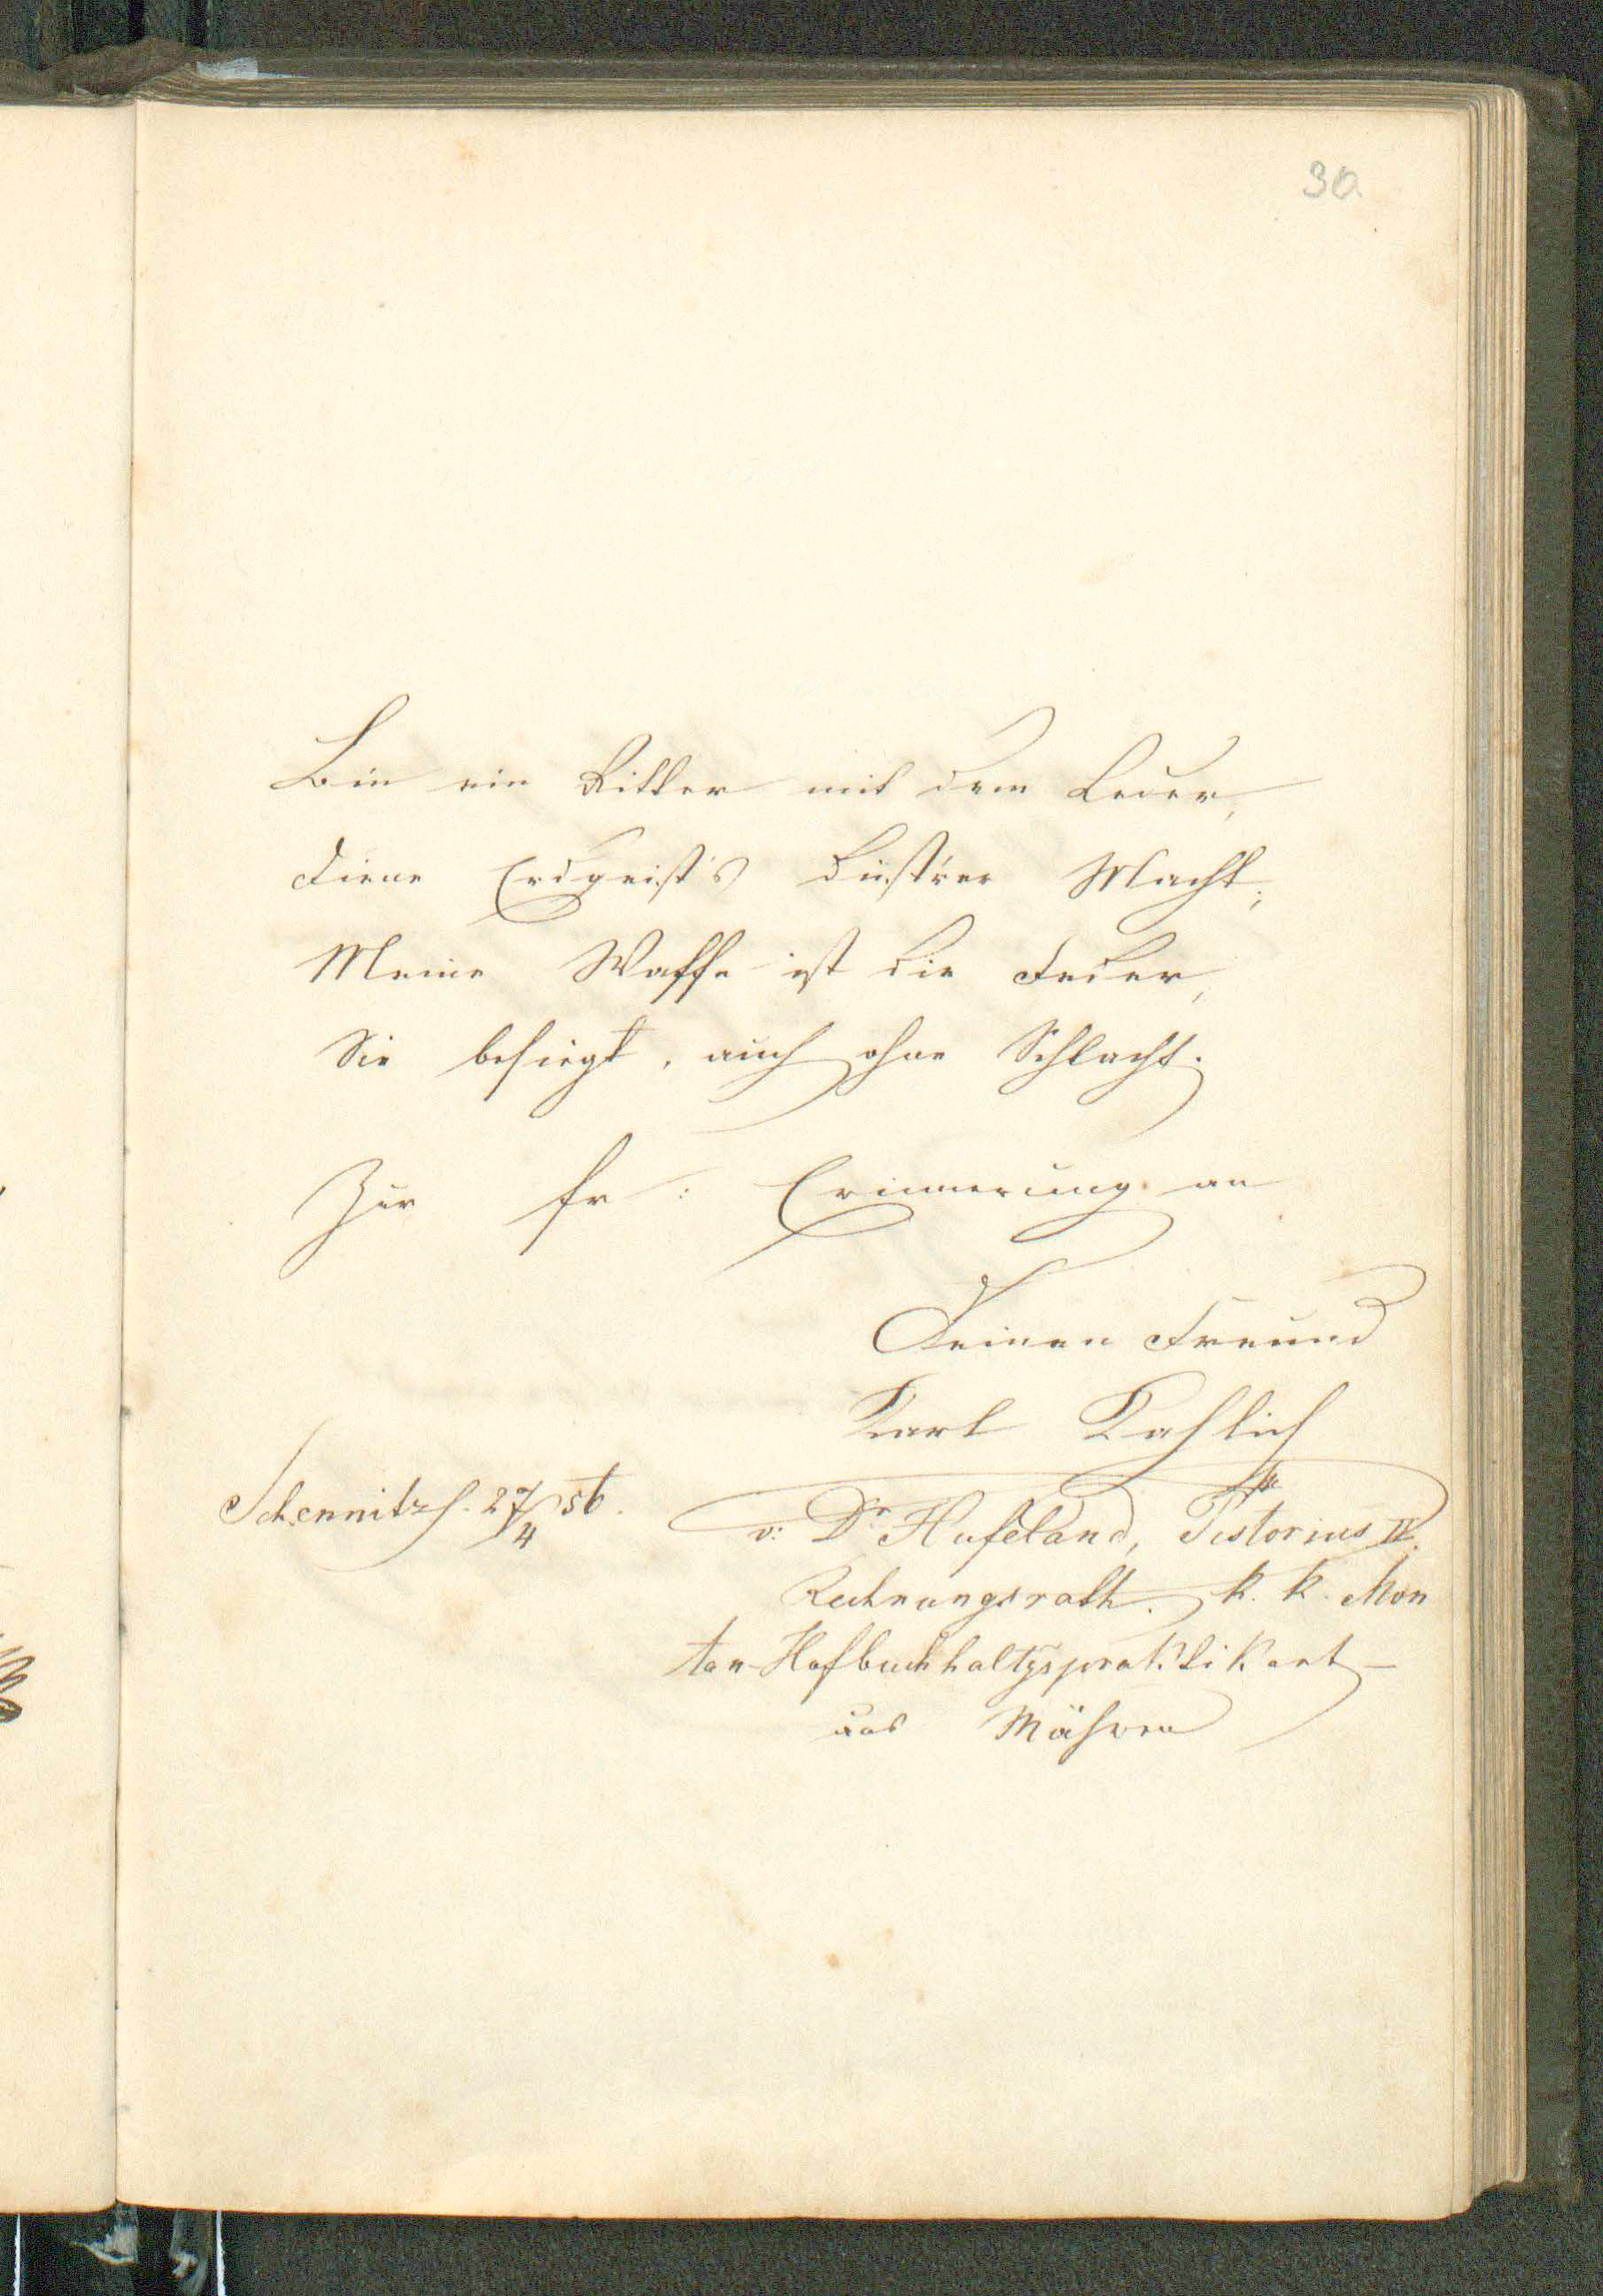 30.
Bin ein Ritter mit dem Leder,
Diene Erdgeist's düst'rer Macht;
Meine Waffe ist die Feder,
Sie besiegt, auch ohne Schlacht.
Zur fr: Erinnerung an
Deinen Freund
Karl Kahlich
Schemnitz 27/4 56.
v: Dr Hufeland, Pistorius IV.
Rechnungsrath. k. k. Mon
tan-Hofbuchhaltgspraktikant
aus Mähren